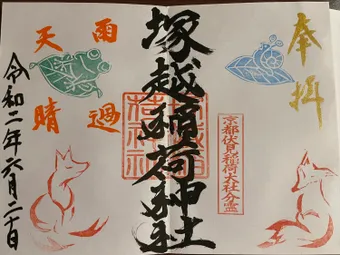 奉拝
京都伏見稲荷大社分霊
塚越稲荷神社
雨過
天晴
令和二年六月二十日